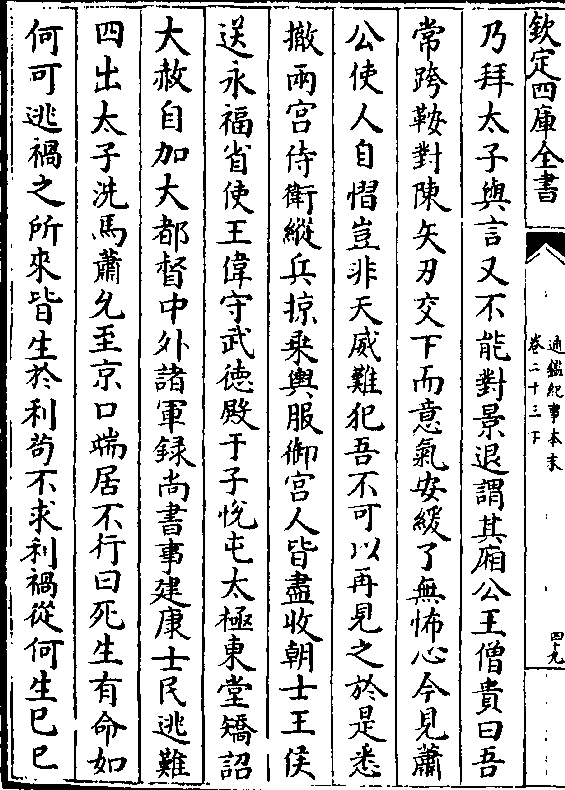 欽定四庫全書
通鑑紀事本末
卷二十三下
四十九
乃拜太子與言又不能對景退謂其廂公王僧貴曰吾
常跨鞍對陳矢刃交下而意氣安緩了無怖心今見蕭
公使人自慴豈非天威難犯吾不可以再見之於是悉
撤兩宫侍衛縱兵掠乗輿服御宫人皆盡收朝士王侯
送永福省使王偉守武徳殿于子悅屯太極東堂矯詔
大赦自加大都督中外諸軍録尚書事建康士民逃難
四出太子洗馬蕭允至京口端居不行曰死生有命如
何可逃禍之所來皆生於利茍不求利禍從何生巳巳